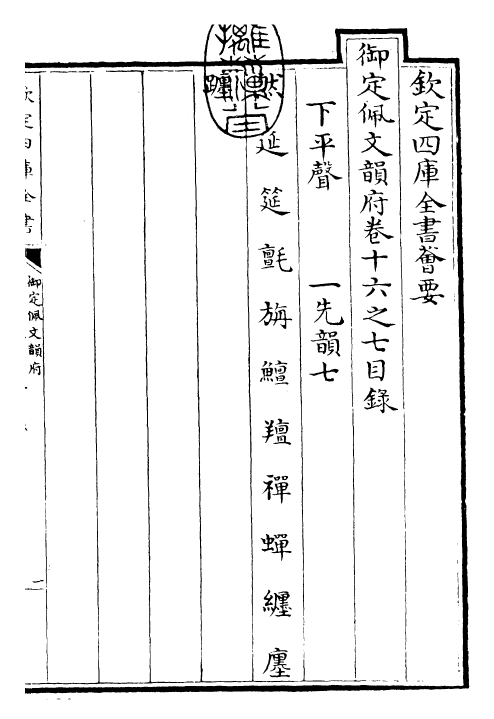 欽定四庫全書薈要
御定佩文韻府卷十六之七目錄
下平聲　一先韻七
然延筵氈旃鱣羶禪蟬纏廛
躔
欽定四庫全書
御定佩文韻府